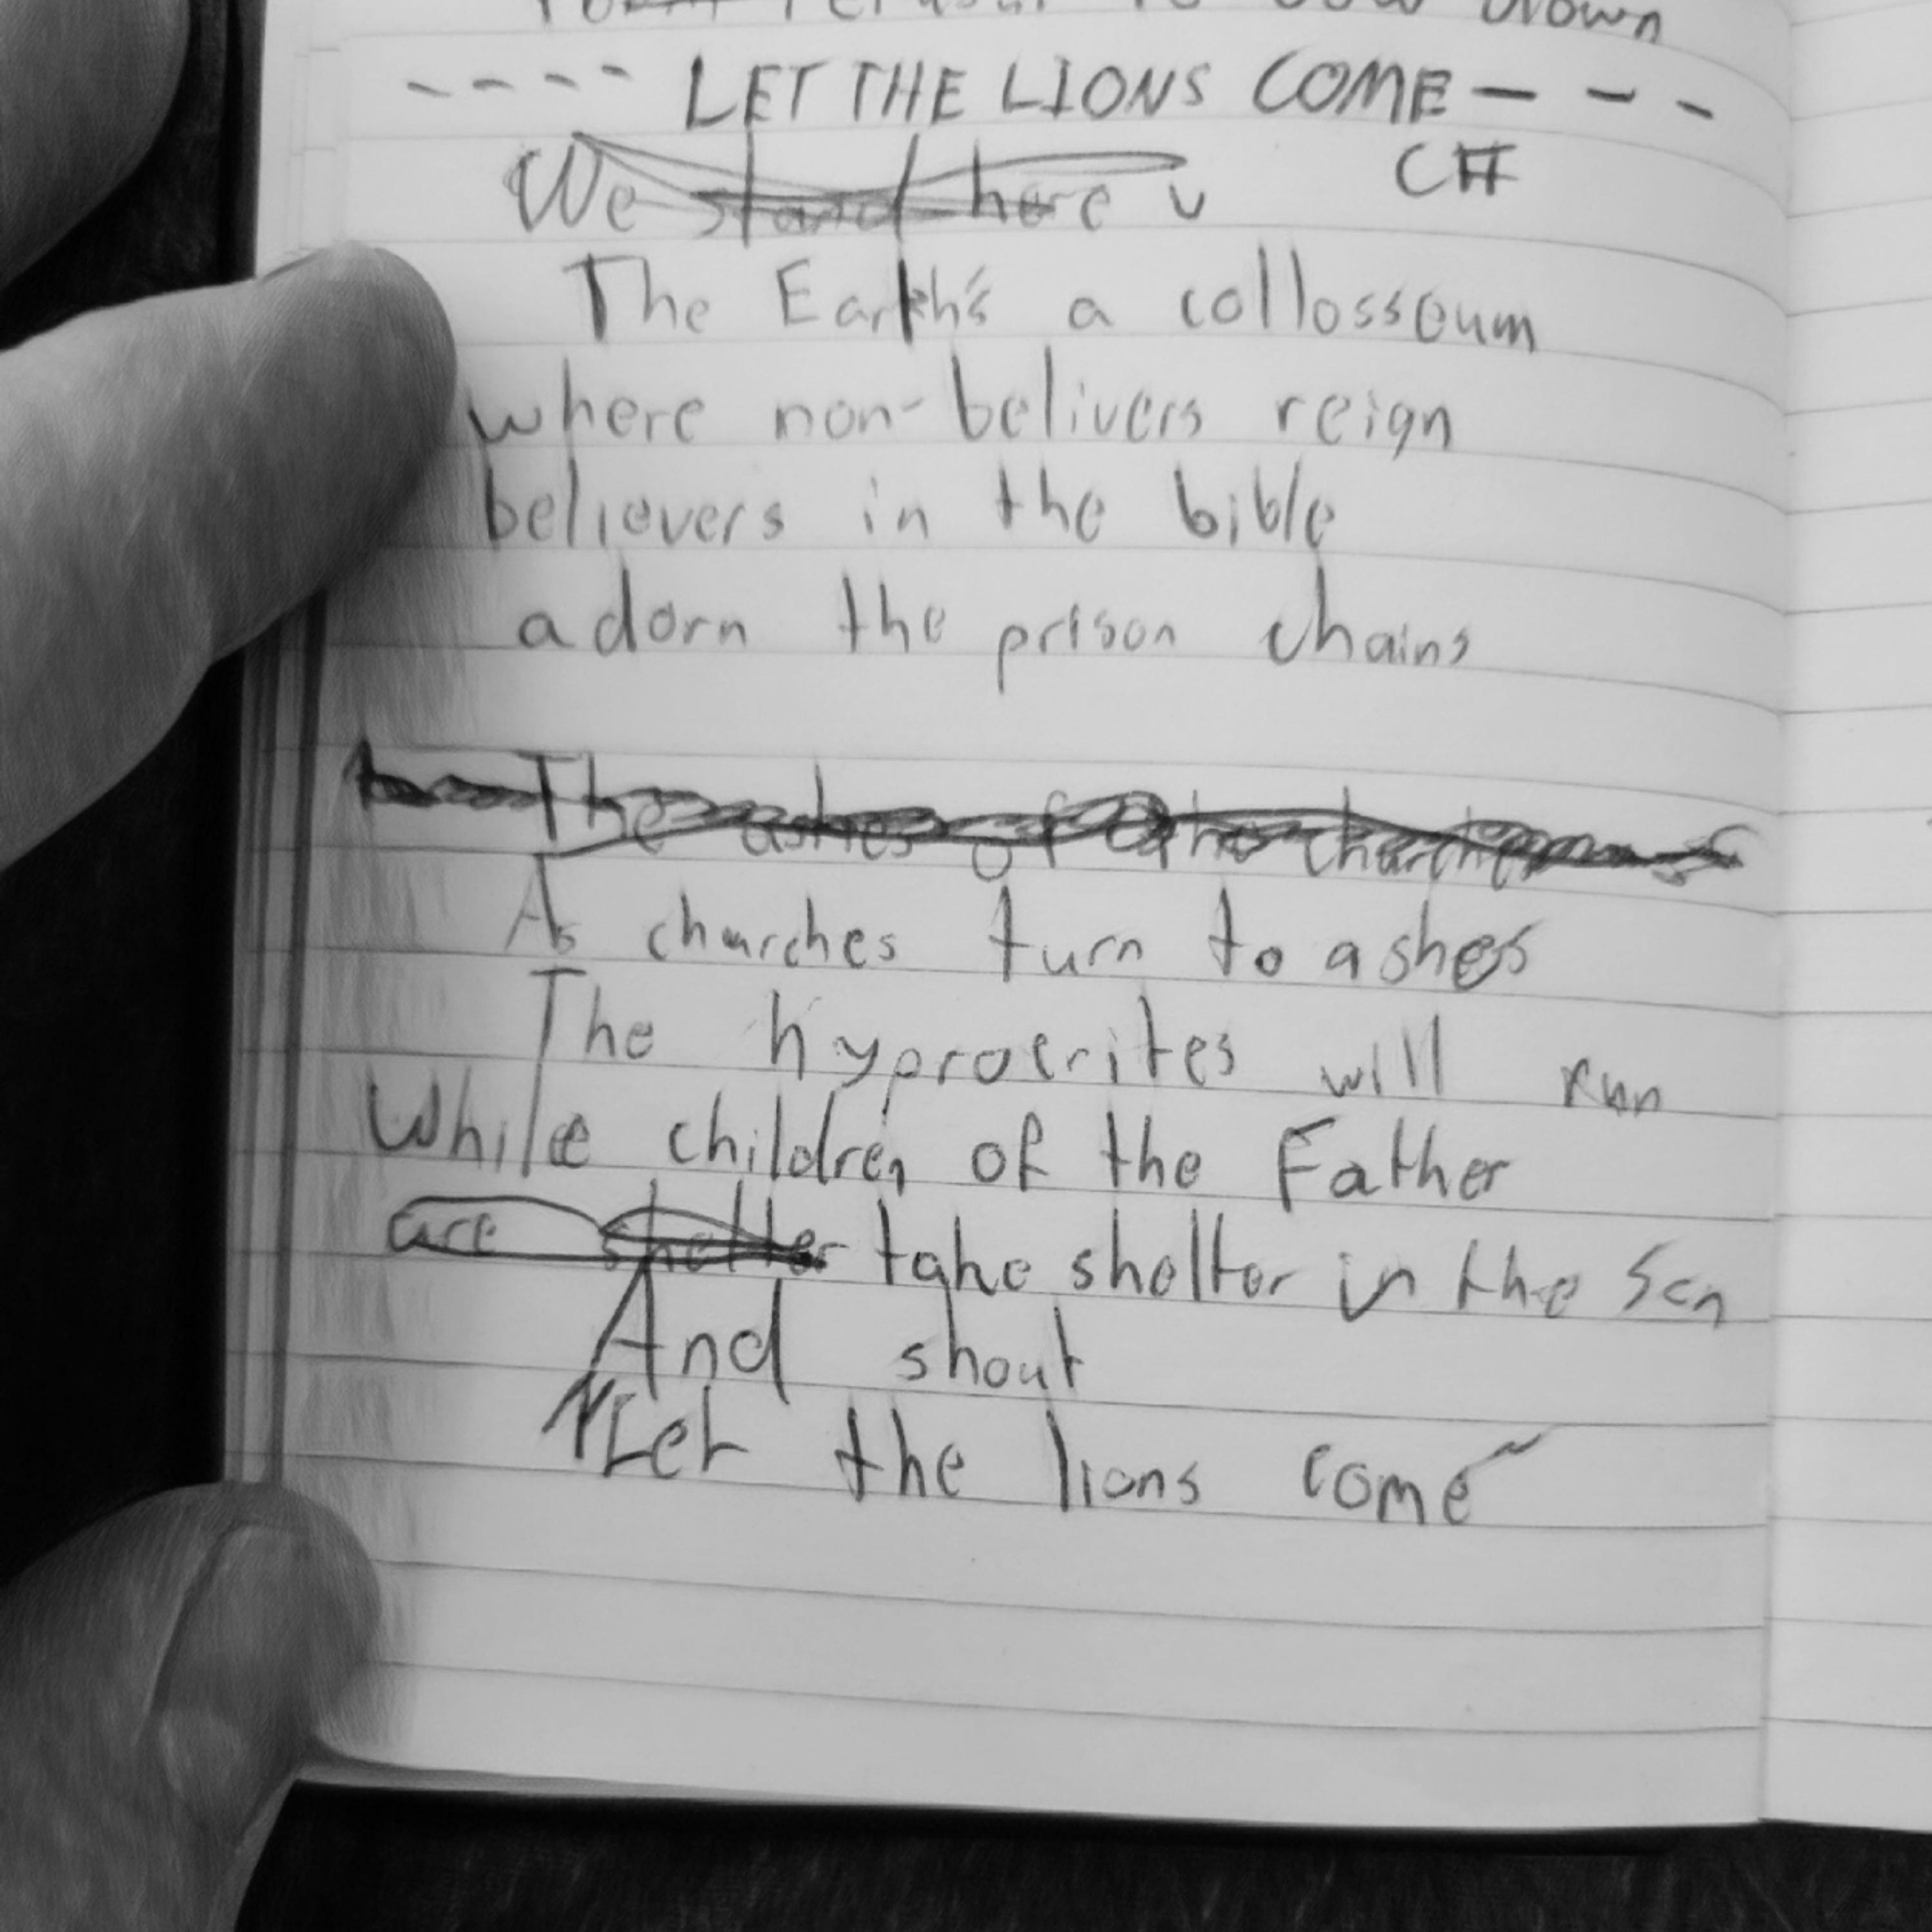 refuse to bow down
---- LET THE LIONS COME ---
We stand here
C#
The Earth's a collosseum
where non-belivers reign
believers in the bible
adorn the prison chains
The ashes of the churches
As churches turn to ashes
The hyprocrites will run
While children of the Father
are shelter take shelter in the Son
And shout
"Let the lions come"